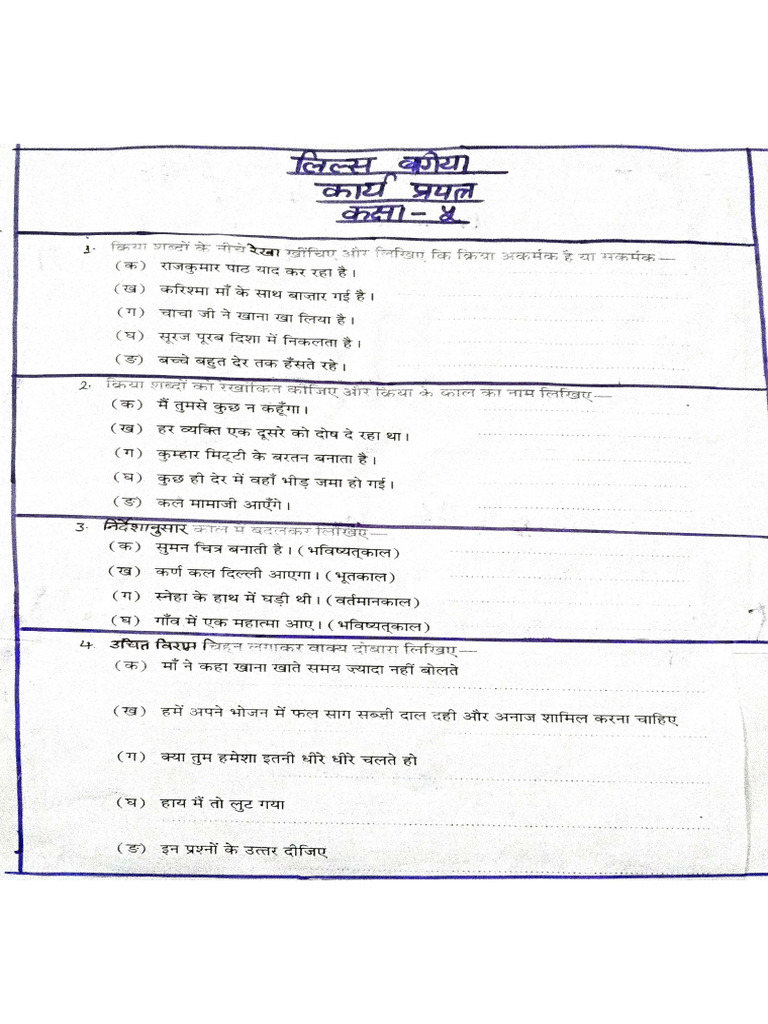 लिल्स बगिया
कार्य प्रपत्र
कक्षा - ५
1. क्रिया शब्दों के नीचे रेखा खींचिए और लिखिए कि क्रिया अकर्मक है या सकर्मक—
(क) राजकुमार पाठ याद कर रहा है।
(ख) करिश्मा माँ के साथ बाज़ार गई है।
(ग) चाचा जी ने खाना खा लिया है।
(घ) सूरज पूरब दिशा में निकलता है।
(ङ) बच्चे बहुत देर तक हँसते रहे।
2. क्रिया शब्दों को रेखांकित कीजिए और क्रिया के काल का नाम लिखिए—
(क) मैं तुमसे कुछ न कहूँगा।
(ख) हर व्यक्ति एक दूसरे को दोष दे रहा था।
(ग) कुम्हार मिट्टी के बरतन बनाता है।
(घ) कुछ ही देर में वहाँ भीड़ जमा हो गई।
(ङ) कल मामाजी आएँगे।
3. निर्देशानुसार काल में बदलकर लिखिए—
(क) सुमन चित्र बनाती है। (भविष्यत्काल)
(ख) कर्ण कल दिल्ली आएगा। (भूतकाल)
(ग) स्नेहा के हाथ में घड़ी थी। (वर्तमानकाल)
(घ) गाँव में एक महात्मा आए। (भविष्यत्काल)
4. उचित विराम चिह्न लगाकर वाक्य दोबारा लिखिए—
(क) माँ ने कहा खाना खाते समय ज़्यादा नहीं बोलते
(ख) हमें अपने भोजन में फल साग सब्ज़ी दाल दही और अनाज शामिल करना चाहिए
(ग) क्या तुम हमेशा इतनी धीरे धीरे चलते हो
(घ) हाय मैं तो लुट गया
(ङ) इन प्रश्नों के उत्तर दीजिए